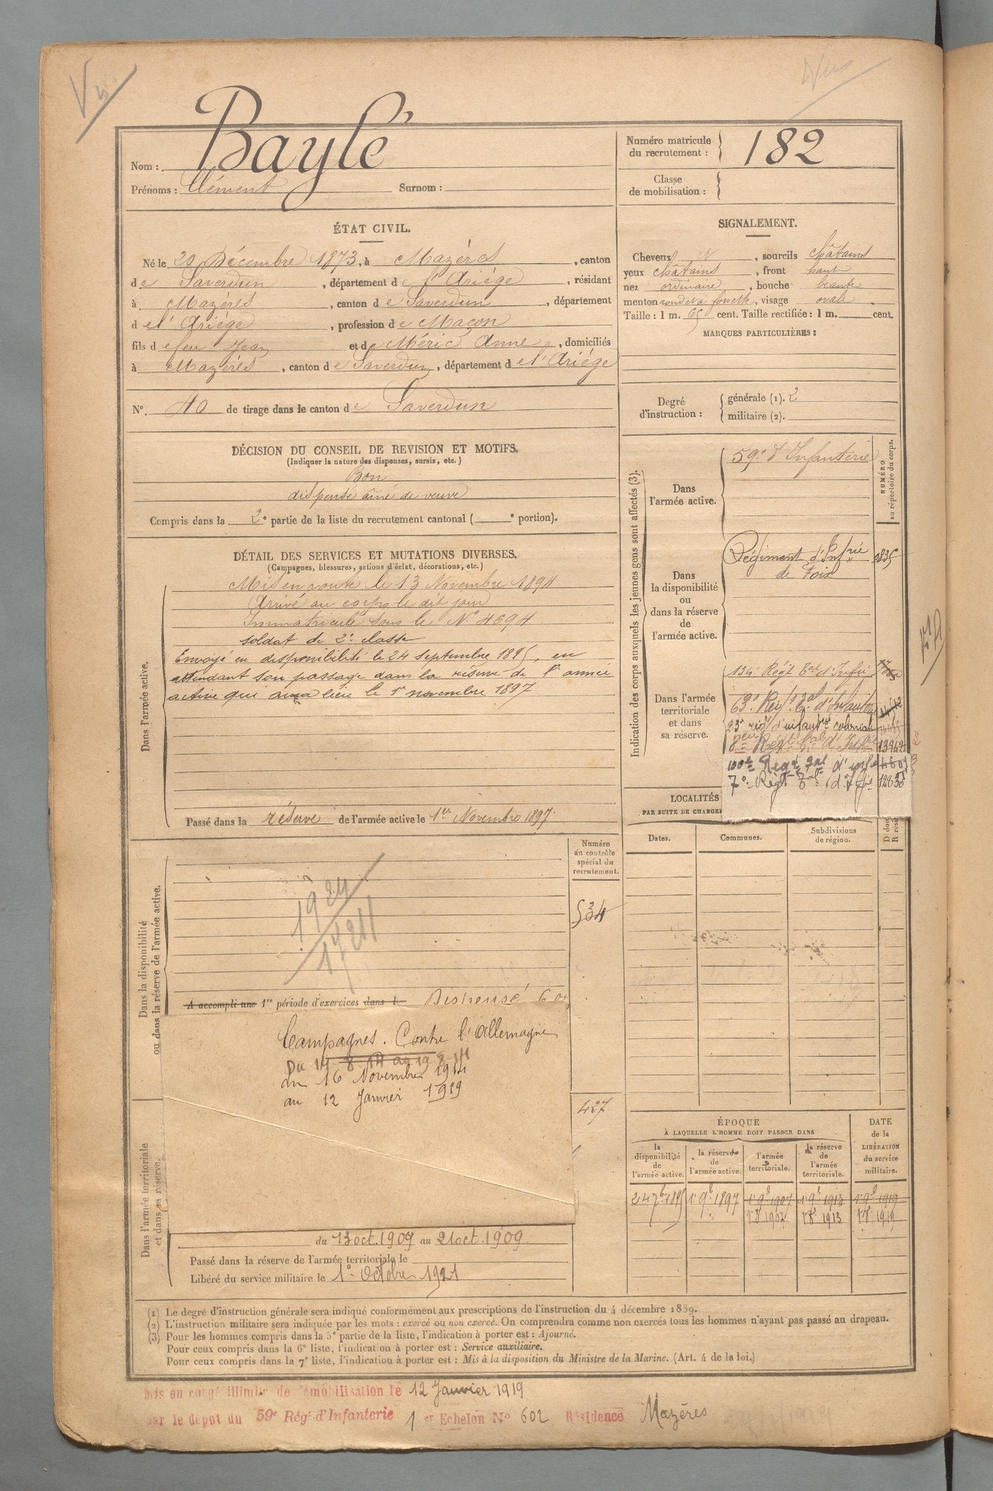 Vu
Nom : Baylé
Prénoms : Clément Surnom :
Numéro matricule du recrutement : 182
Classe de mobilisation :
ÉTAT CIVIL.
Né le 29 Décembre 1873, à Mazères, canton
de Saverdun, département de l'Ariége, résidant
à Mazères, canton de Saverdun, département
d e l'Ariége, profession de Maçon
fils d e feu Jean et de Méric Anne, domiciliés
à Mazères, canton de Saverdun, département d e l'Ariége
N° 40 de tirage dans le canton de Saverdun
DÉCISION DU CONSEIL DE REVISION ET MOTIFS.
(Indiquer la nature des dispenses, sursis, etc.)
Bon
dispensé ainé de veuve
Compris dans la 2e partie de la liste du recrutement cantonal ( e portion).
SIGNALEMENT.
Cheveux , sourcils châtains
yeux châtains, front haut
nez ordinaire, bouche
menton rond à fossette, visage ovale
Taille : 1 m. 65 cent. Taille rectifiée : 1 m. cent.
MARQUES PARTICULIÈRES :
Degré d'instruction : générale (1). 2
militaire (2).
DÉTAIL DES SERVICES ET MUTATIONS DIVERSES.
(Campagnes, blessures, actions d'éclat, décorations, etc.)
Dans l'armée active.
Mis en route le 13 Novembre 1894
Arrivé au corps le dit jour
Immatriculé sous le N° 4694
soldat de 2e classe
Envoyé en disponibilité le 24 septembre 1895, en
attendant son passage dans la réserve de l'armée
active qui aura lieu le 1er novembre 1897
Passé dans la réserve de l'armée active le 1er Novembre 1897.
Indication des corps auxquels les jeunes gens sont affectés (3).
NUMÉRO au répertoire du corps.
Dans l'armée active.
59e d'Infanterie
Dans la disponibilité ou dans la réserve de l'armée active.
Régiment d'Infrie de Foix 1835
Dans l'armée territoriale et dans sa réserve.
134e Régt Ter d'Infie
63e Régt Tal d'Infanterie
23e rég d'infantrie coloniale
8e Régt Tal d'Infie 13942
100e Regt Tal d'infie
7e Régt Tal d'Infie
LOCALITÉS
PAR SUITE DE CHANGE
Dates. Communes. Subdivisions de région.
Numéro au contrôle spécial du recrutement.
534
Dans la disponibilité ou dans la réserve de l'armée active.
1924
17211
A accompli une 1re période d'exercices dans l. Dispensé
Campagnes. Contre l'Allemagne
du 16 Novembre 1914
au 12 Janvier 1919
427
Dans l'armée territoriale et dans sa réserve.
du 13 oct. 1909 au 21 oct. 1909.
Passé dans la réserve de l'armée territoriale le
Libéré du service militaire le 1er Octobre 1921
ÉPOQUE
À LAQUELLE L'HOMME DOIT PASSER DANS
la disponibilité de l'armée active. la réserve de l'armée active. l'armée territoriale. la réserve de l'armée territoriale.
DATE de la LIBÉRATION du service militaire.
24 7bre 1895 1 9bre 1897 1 9bre 1907 1 9bre 1913 1 9bre 1919
1 8bre 1907 1 8bre 1913 1 8bre 1919
(1) Le degré d'instruction générale sera indiqué conformément aux prescriptions de l'instruction du 4 décembre 1889.
(2) L'instruction militaire sera indiquée par les mots : exercé ou non exercé. On comprendra comme non exercés tous les hommes n'ayant pas passé au drapeau.
(3) Pour les hommes compris dans la 5e partie de la liste, l'indication à porter est : Ajourné.
Pour ceux compris dans la 6e liste, l'indication à porter est : Service auxiliaire.
Pour ceux compris dans la 7e liste, l'indication à porter est : Mis à la disposition du Ministre de la Marine. (Art. 4 de la loi.)
Mis en congé illimité de démobilisation le 12 Janvier 1919
par le dépôt du 59e Régt d'Infanterie 1er Echelon N° 602 Résidence Mazères